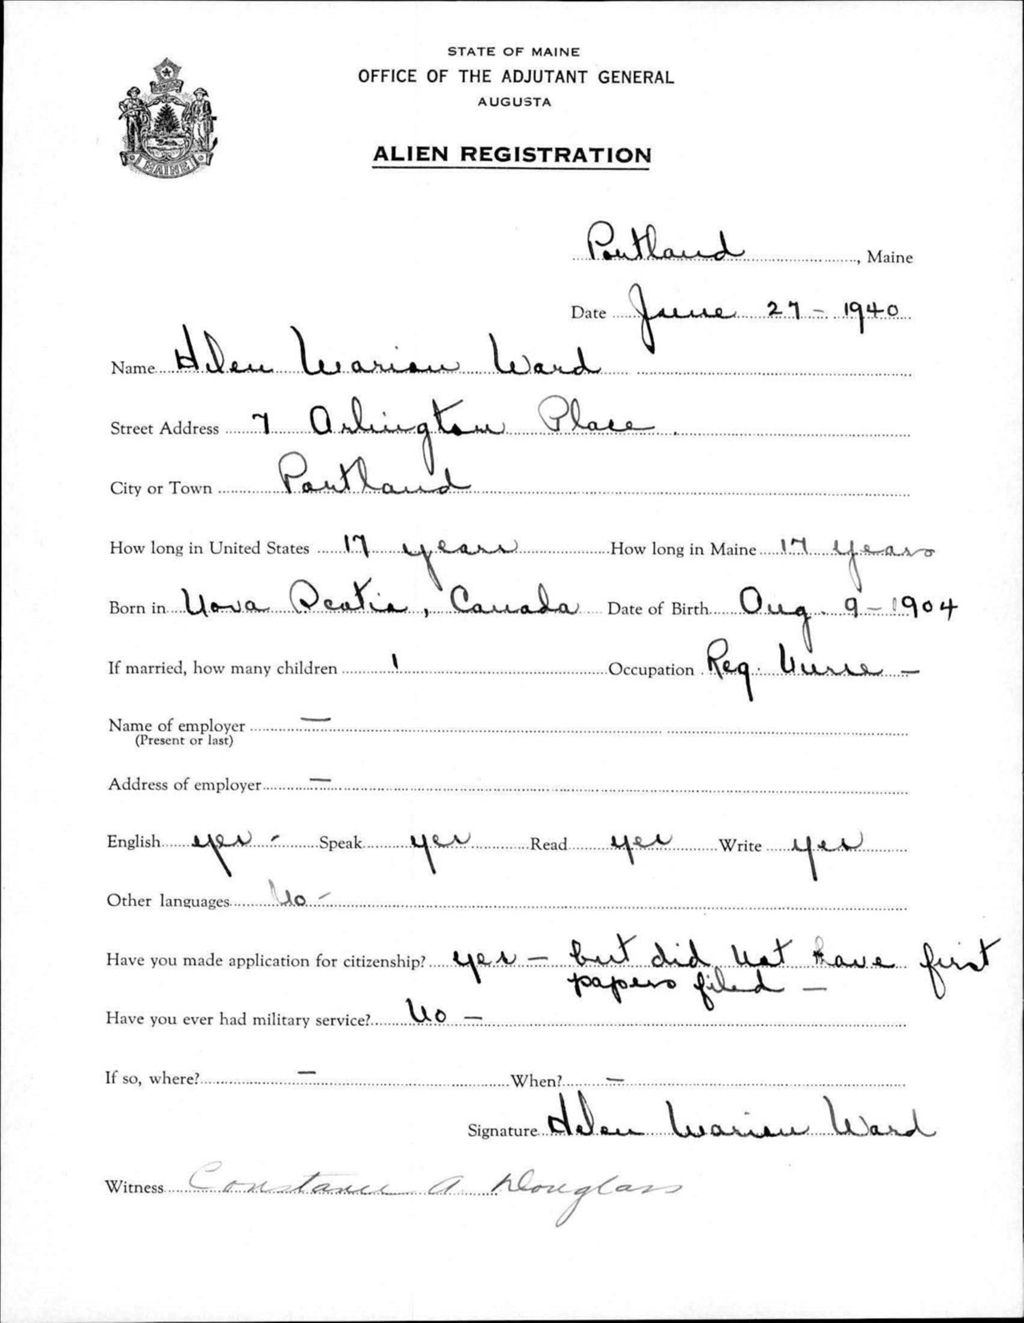 STATE OF MAINE
OFFICE OF THE ADJUTANT GENERAL
AUGUSTA
ALIEN REGISTRATION
MAINE
Portland, Maine
Date June 27 - 1940
Name Helen Marion Ward
Street Address 7 Arlington Place.
City or Town Portland
How long in United States 17 years How long in Maine 17 years
Born in Nova Scotia, Canada Date of Birth Aug. 9 - 1904
If married, how many children 1 Occupation Reg. Nurse -
Name of employer —
(Present or last)
Address of employer —
English yes - Speak yes Read yes Write yes
Other languages No -
Have you made application for citizenship? yes - but did not have first
papers filed -
Have you ever had military service? No -
If so, where? — When? —
Signature Helen Marion Ward
Witness Constance A Douglass